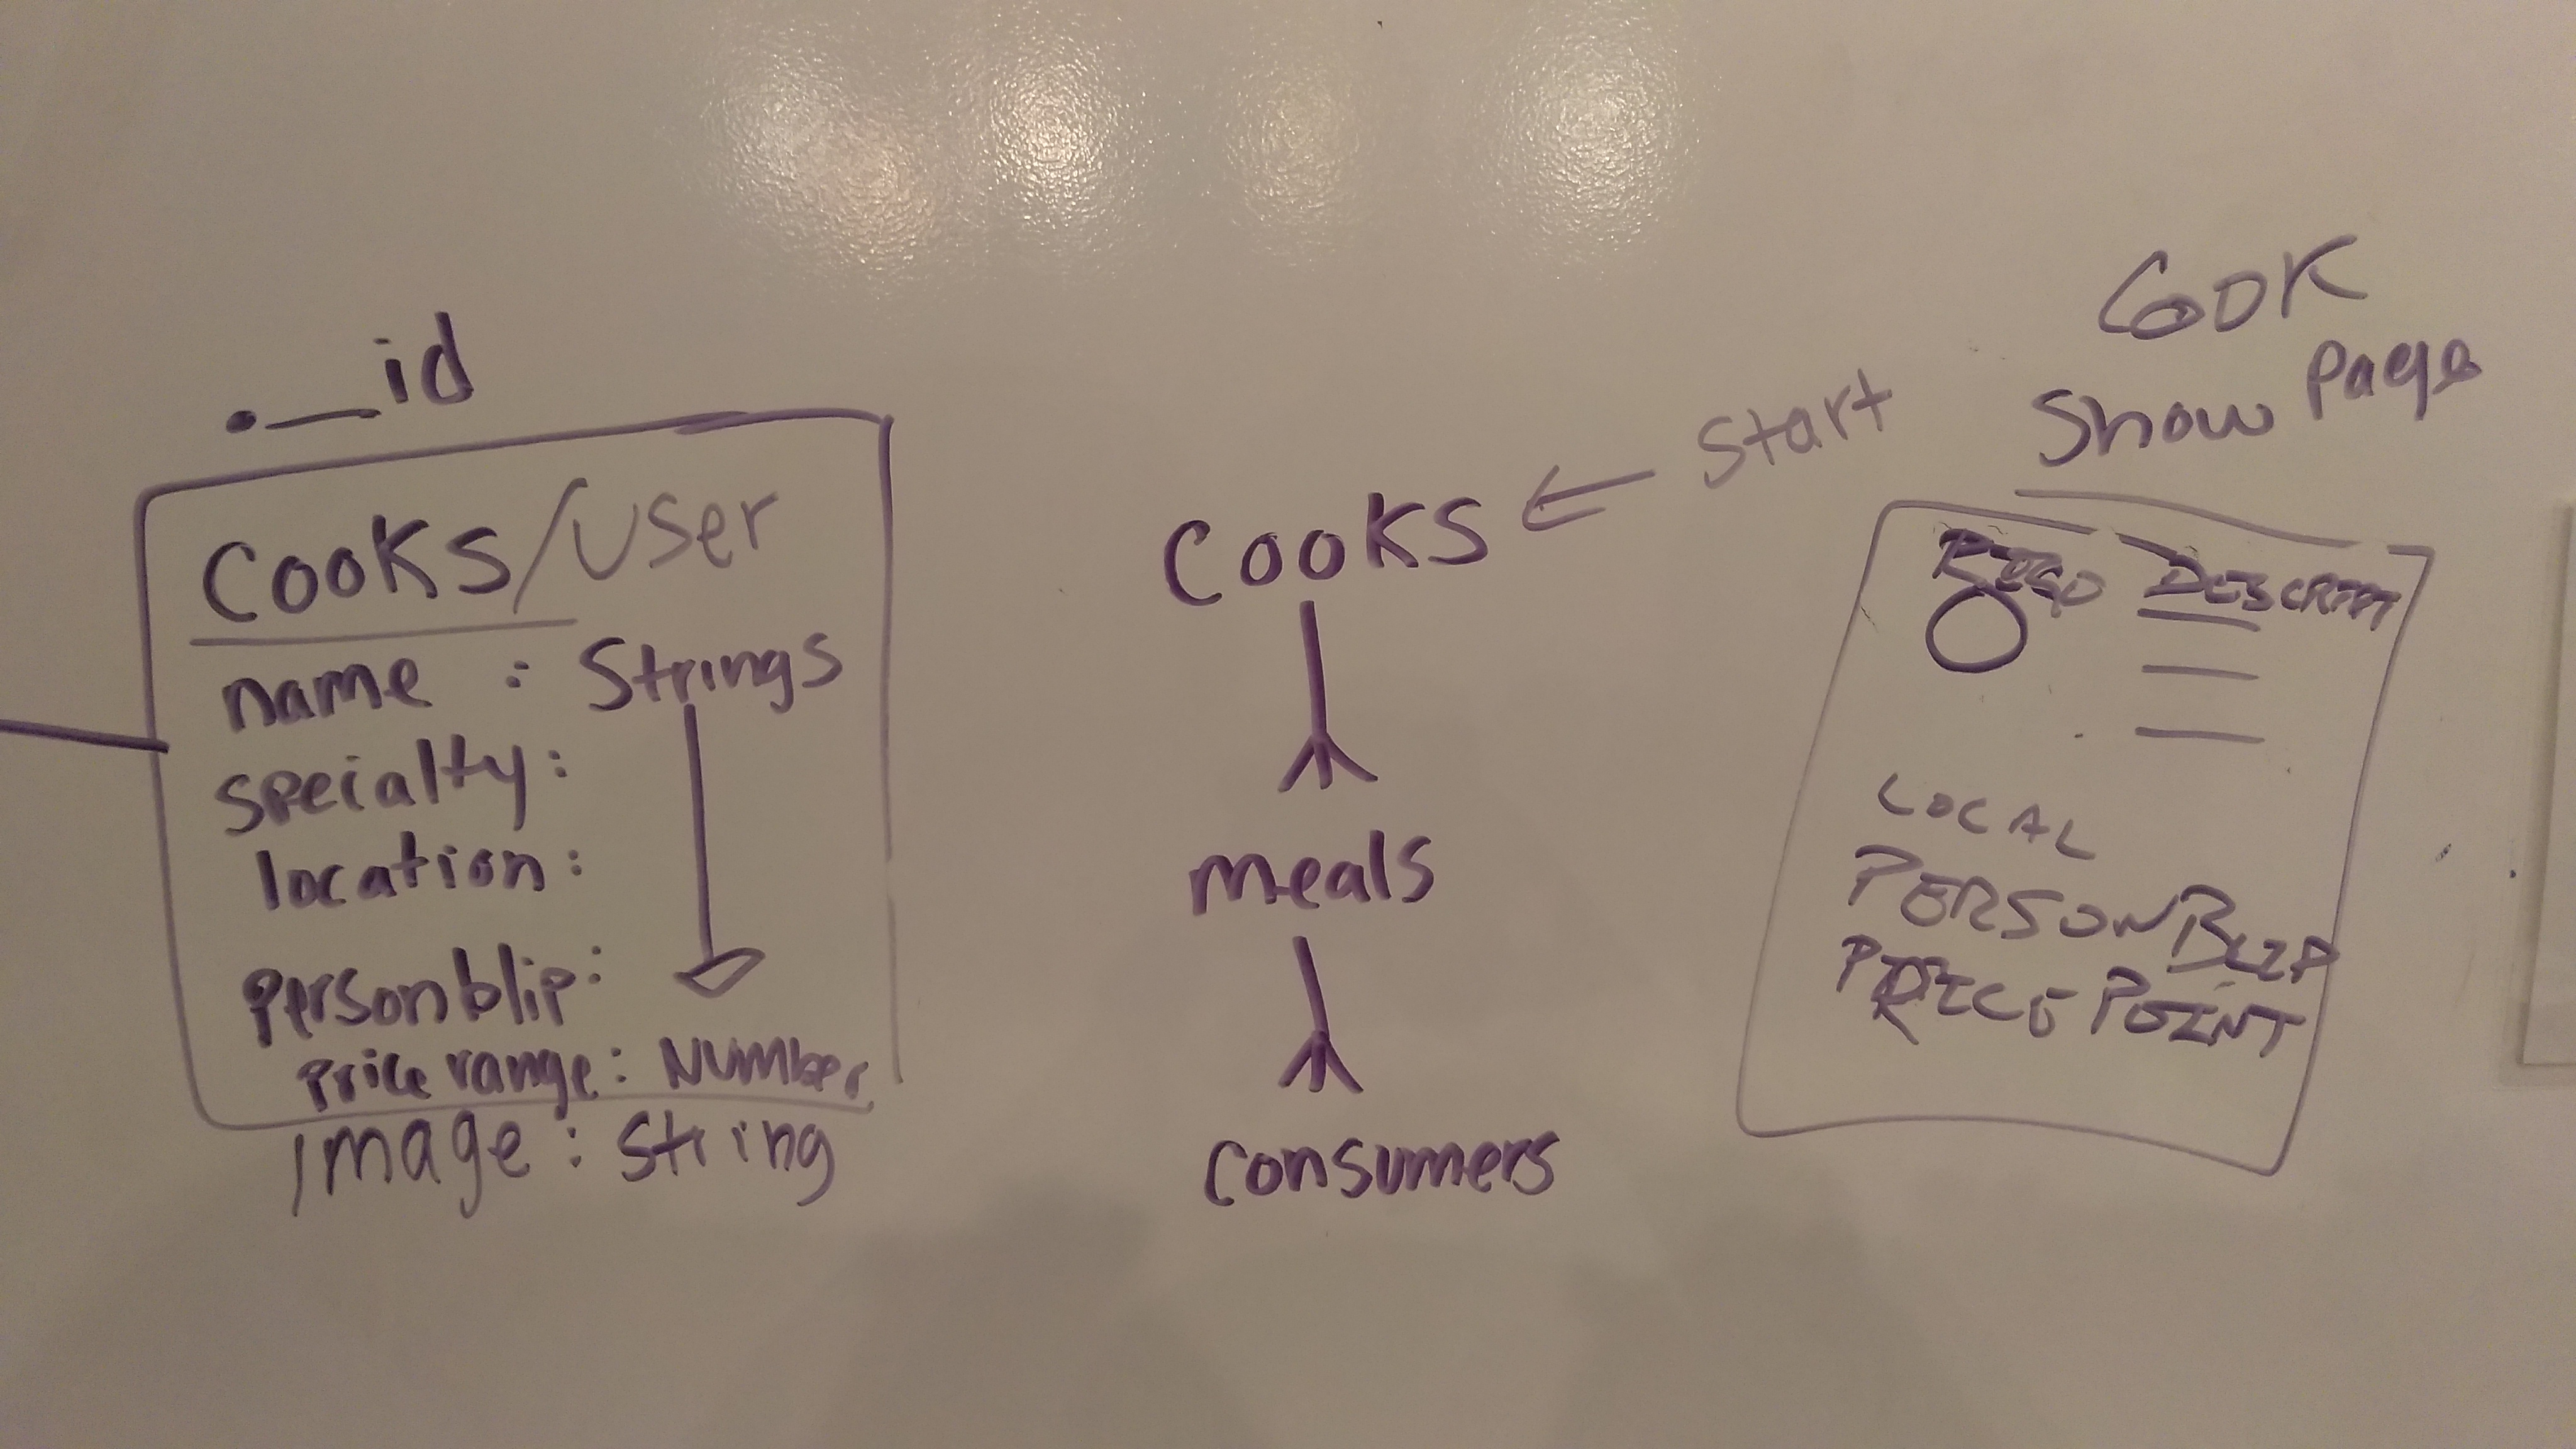 ._id
Cooks/User
name : Strings
specialty:
location:
personblip:
Price range: Number
image: String
Cooks ← Start
meals
consumers
Cook
Show Page
DESCRIPT
LOCAL
PERSONBLIP
PRICE POINT